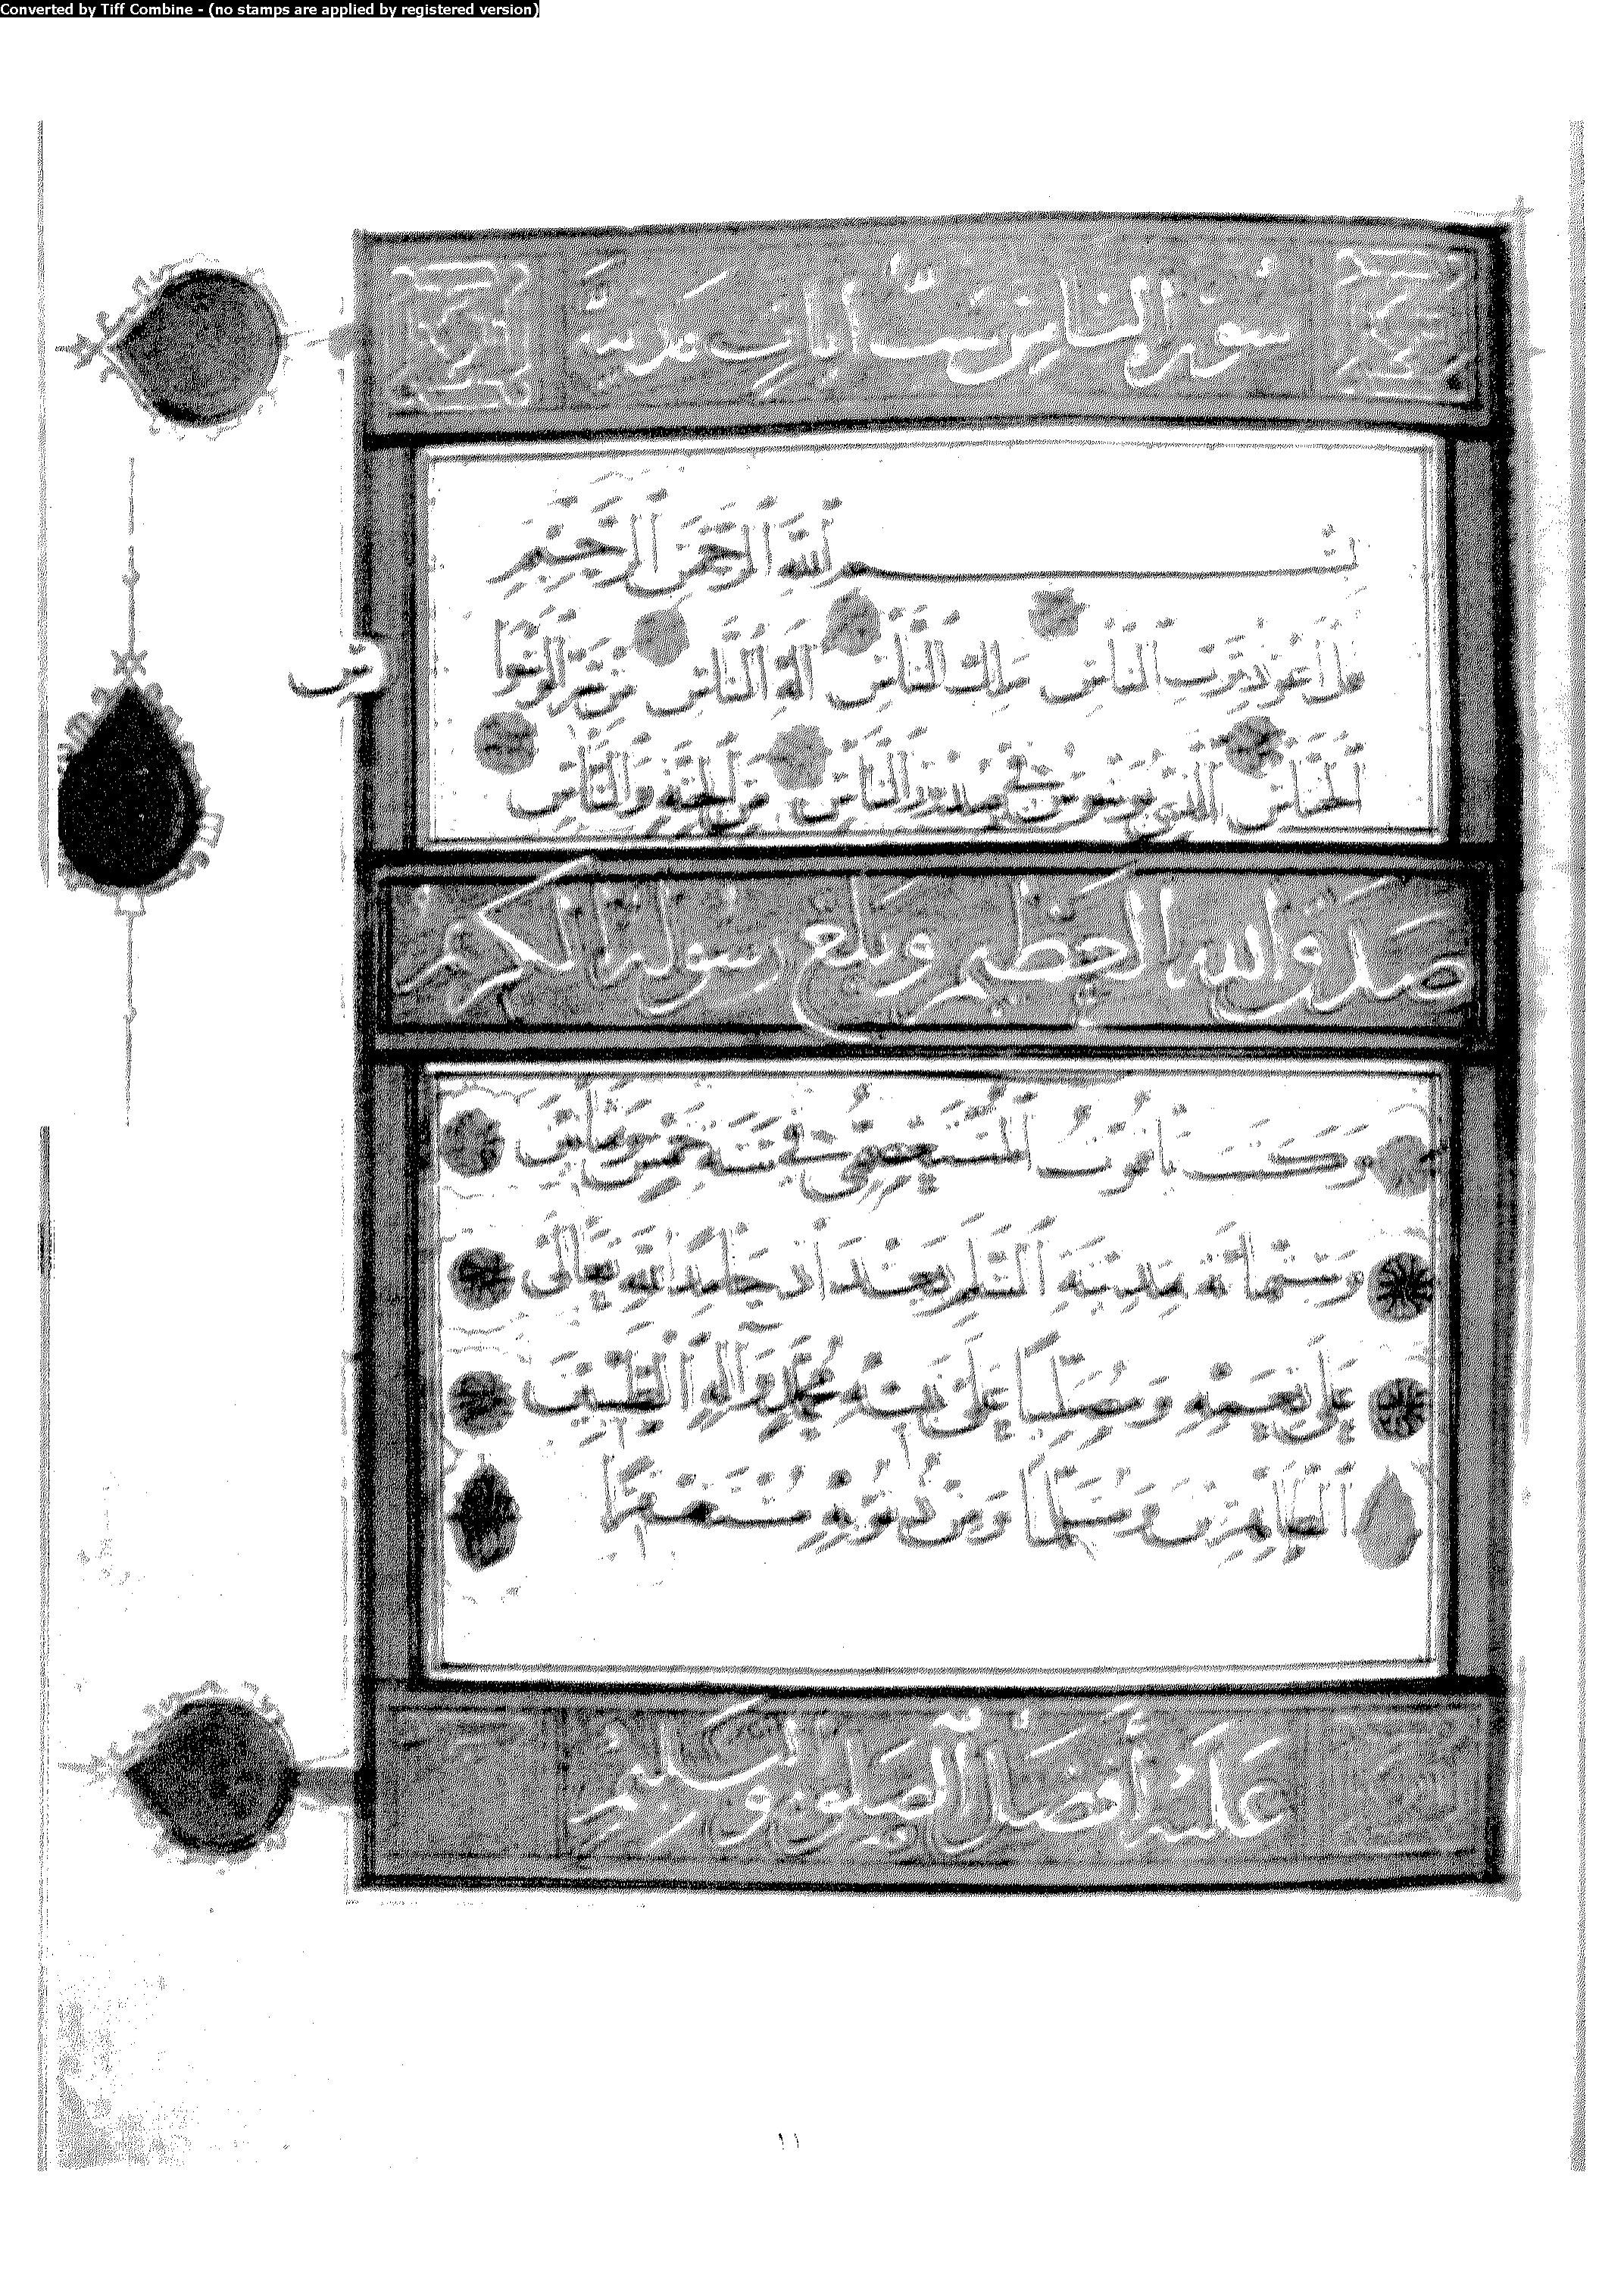 Converted by Tiff Combine - (no stamps are applied by registered version)
سورة الناس ست آيات مدنية
بسم الله الرحمن الرحيم
قل أعوذ برب الناس ملك الناس إله الناس من شر الوسواس
الخناس الذي يوسوس في صدور الناس من الجنة والناس
صدق الله العظيم وبلغ رسوله الكريم
وكتب ياقوت المستعصمي في سنة خمس وثمانين
وستمائة بمدينة السلم بغداد حامدا لله تعالى
على نعمه ومصليا على نبيه محمد وآله الطيبين
الطاهرين ومسلما ومن ذنوبه مستغفرا
عليه أفضل الصلوة والتسليم
١١